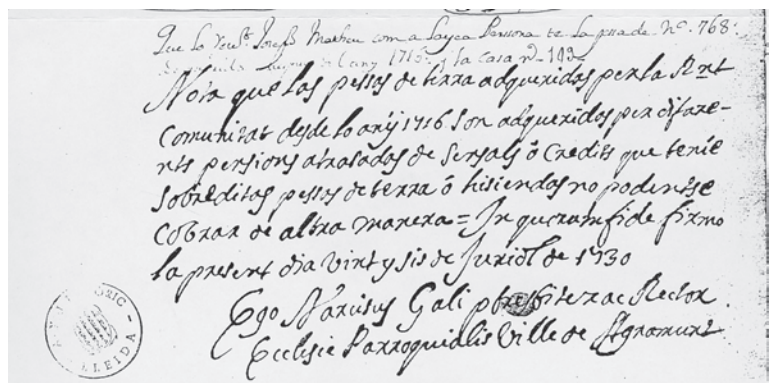 Que lo Revt. Joseph Matheu com a layca Perssona te la pssa de No. 768.
lany 1715. y la Casa no. 149.
Nota que las pessas de terra adqueridas per la Rnt
Comunitat desde lo añy 1716. Son adqueridas per difare-
nts pensions atrasadas de Sensals ô Credits que tenie
Sobreditas pessas de terra ô hisiendas no podentse
Cobrar de altra manera = In quorum fide firmo
la present dia vint y sis de Juriol de 1730
Ego Narcisus Gali pbre Rector
Ecclesie Parroquialis Ville de Agramunt
LLEIDA